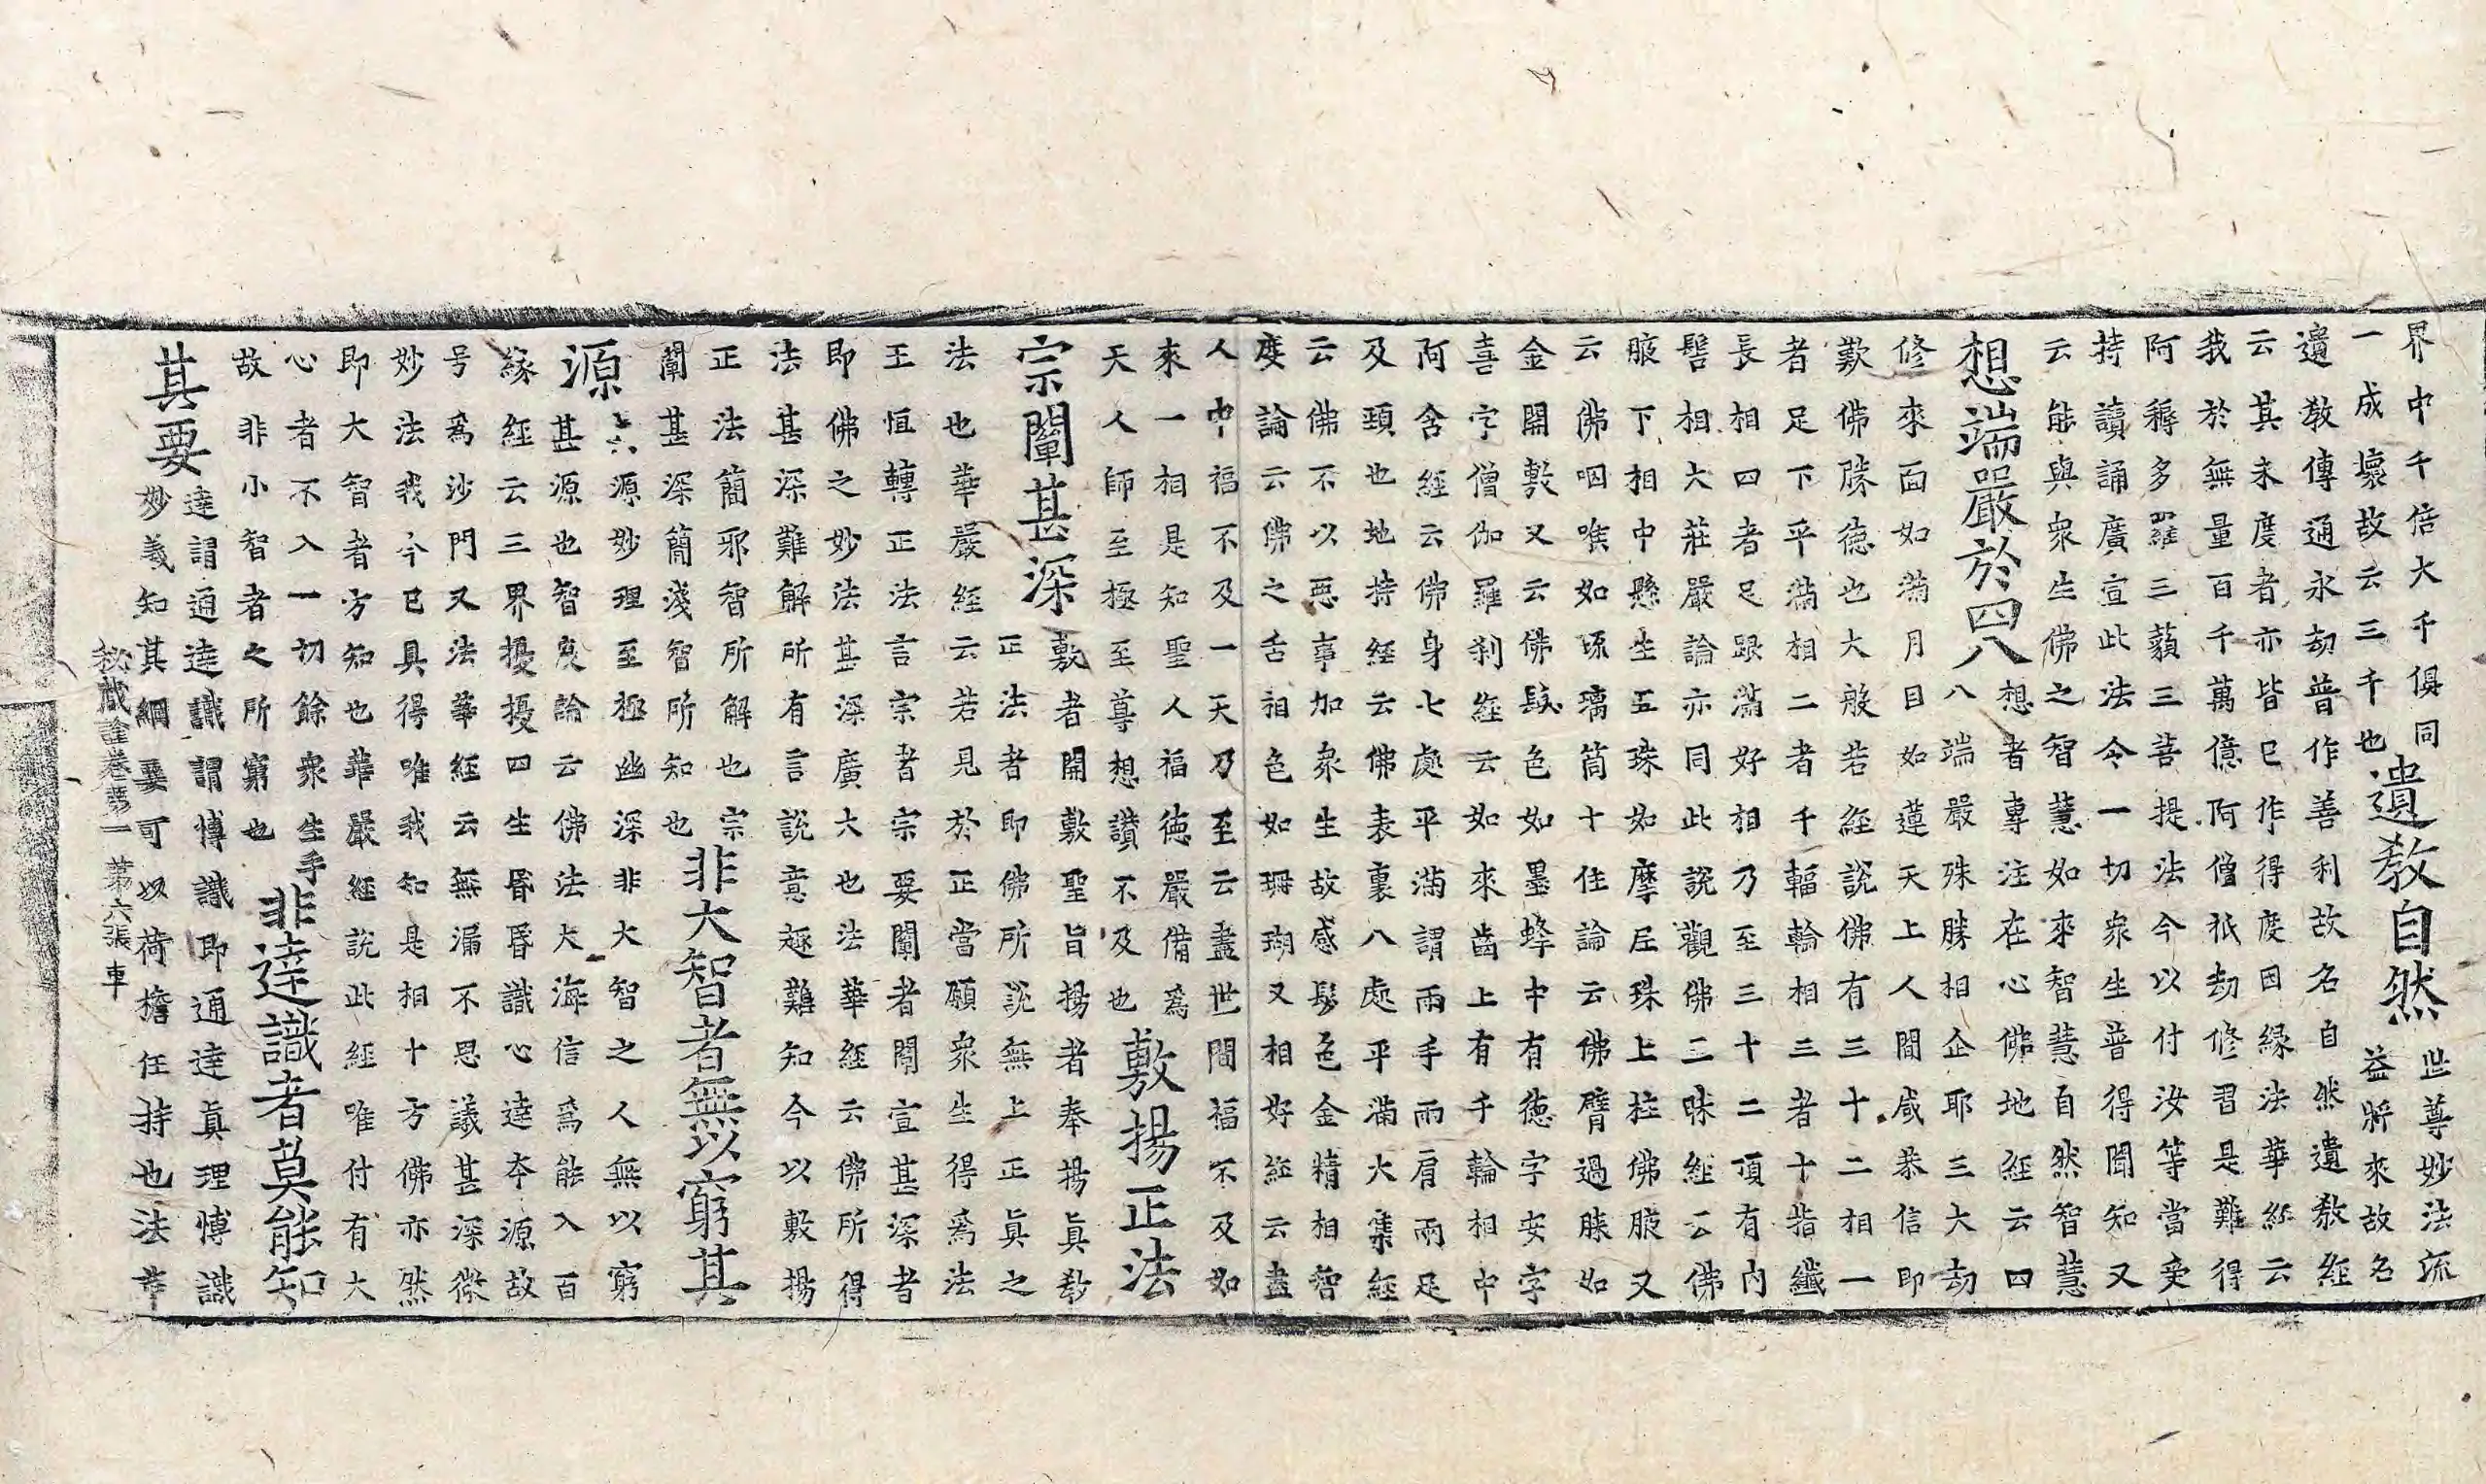 界中千倍大千俱同
一成壞故云三千也
遺教自然
世尊妙法流
益將來故名
遺教傳通永劫普作善利故名自然遺教經
云其未度者亦皆已作得度因緣法華經云
我於無量百千萬億阿僧祇劫修習是難得
阿耨多羅三藐三菩提法今以付汝等當受
持讀誦廣宣此法令一切衆生普得聞知又
云能與衆生佛之智慧如來智慧自然智慧
想端嚴於四八
想者專注在心佛地經云四
八端嚴殊勝相企耶三大劫
修來面如滿月目如蓮天上人間咸恭信即
歎佛勝德也大般若經說佛有三十二相一
者足下平滿相二者千輻輪相三者十指纖
長相四者足跟滿好相乃至三十二頂有肉
髻相大莊嚴論亦同此說觀佛三昧經云佛
腋下相中懸生五珠如摩尼珠上拄佛腋又
云佛咽喉如琉璃筒十住論云佛臂過膝如
金開敷又云佛髮色如墨蜂中有德字安字
喜字僧伽羅刹經云如來齒上有千輪相中
阿含經云佛身七處平滿謂兩手兩肩兩足
及頸也地持經云佛表裏八處平滿大集經
云佛不以惡事加衆生故感髮色金精相智
度論云佛之舌相色如珊瑚又相好經云盡
人中福不及一天乃至云盡世間福不及如
來一相是知聖人福德嚴備爲
天人師至極至尊想讚不及也
敷揚正法
宗闡甚深
敷者開敷聖旨揚者奉揚眞教
正法者即佛所說無上正眞之
法也華嚴經云若見於正當願衆生得爲法
王恒轉正法言宗者宗要闡者開宣甚深者
即佛之妙法甚深廣大也法華經云佛所得
法甚深難解所有言說意趣難知今以敷揚
正法簡邪智所解也宗
闡甚深簡淺智所知也
非大智者無以窮其
源
六源妙理至極幽深非大智之人無以窮
甚源也智度論云佛法大海信爲能入百
緣經云三界擾擾四生昏昏識心達本源故
号爲沙門又法華經云無漏不思議甚深微
妙法我今已具得唯我知是相十方佛亦然
即大智者方知也華嚴經說此經唯付有大
心者不入一切餘衆生手
故非小智者之所窮也
非達識者莫能知
其要
達謂通達識謂博識即通達眞理博識
妙義知其綱要可以荷擔任持也法華
秘藏詮卷第一 第六張 車